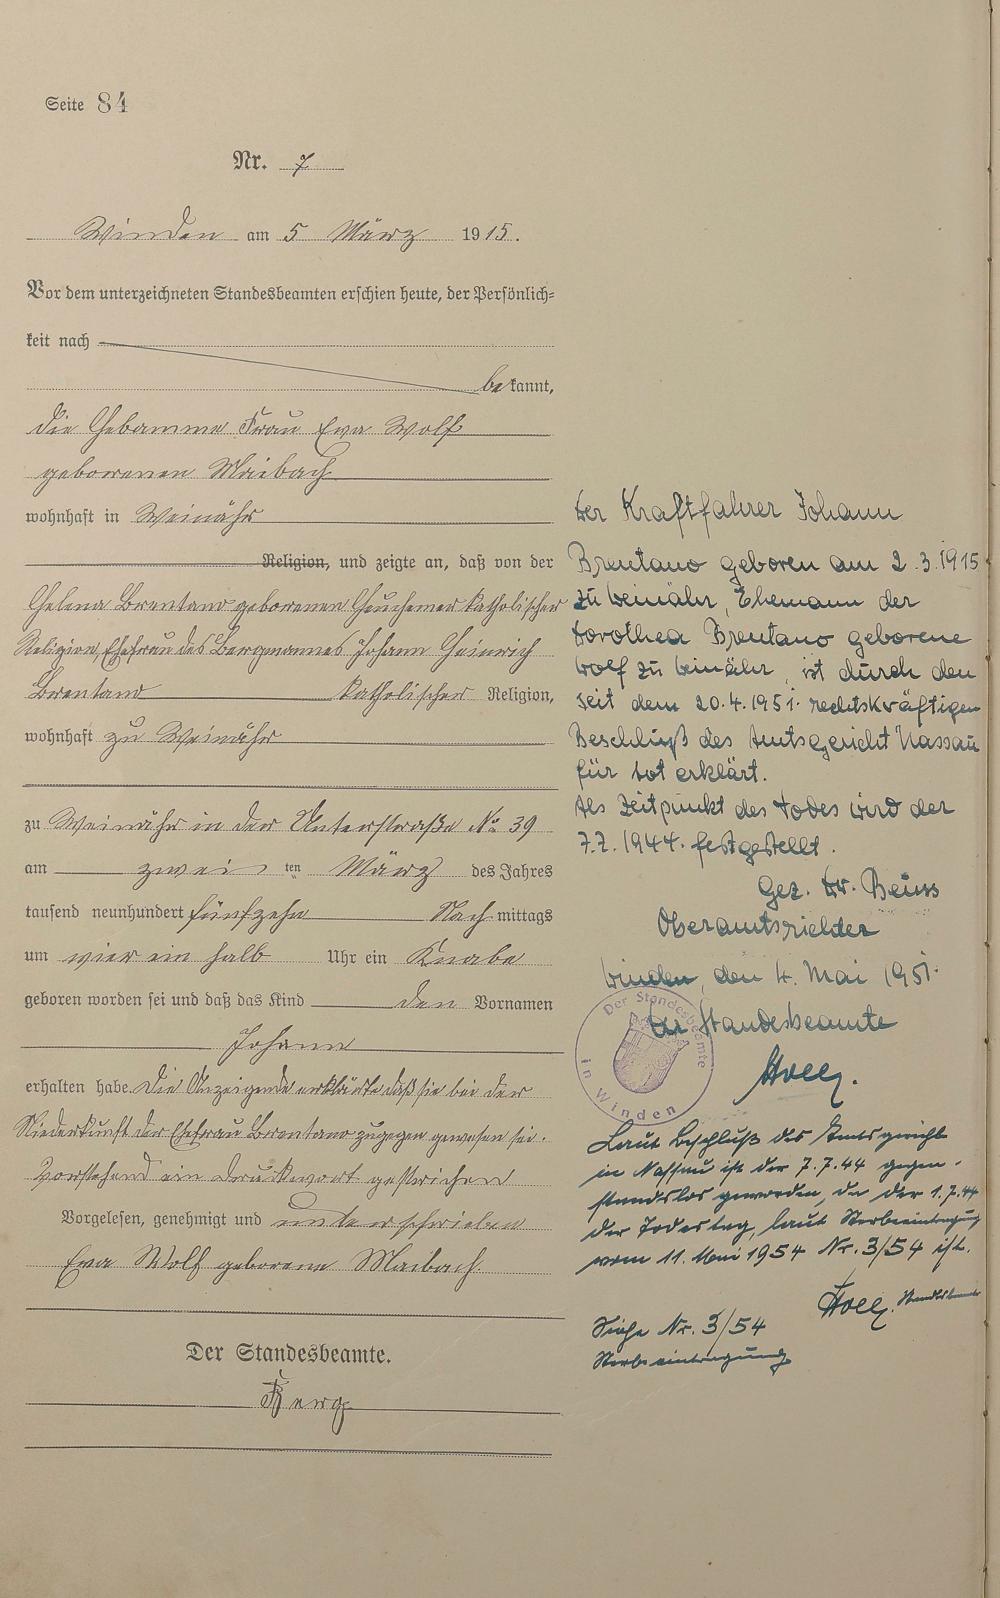 Seite 84
Nr. 7
Winden am 5 März 1915.
Vor dem unterzeichneten Standesbeamten erschien heute, der Persönlich=
keit nach
bekannt,
die Hebamme Frau Eva Wolf
geborenen Maibach
wohnhaft in Weinähr
Religion, und zeigte an, daß von der
Helena Brentano geborenen Heuchemer katholischer
Religion, Ehefrau des Bergmannes Johann Heinrich
Brentano katholischer Religion,
wohnhaft zu Weinähr
zu Weinähr in der Unterstraße No 39
am zwei ten März des Jahres
tausend neunhundert fünfzehn Nach mittags
um vier ein halb Uhr ein Knabe
geboren worden sei und daß das Kind den Vornamen
Johann
erhalten habe. Die Anzeigende erklärte daß sie bei der
Niederkunft der Ehefrau Brentano zugegen gewesen sei.
Vorstehend ein Druckwort gestrichen
Vorgelesen, genehmigt und unterschrieben
Eva Wolf geborene Maibach
Der Standesbeamte.
Berg
Der Kraftfahrer Johann
Brentano geboren am 2.3.1915
zu Weinähr, Ehemann der
Dorothea Brentano geborene
Wolf zu Weinähr, ist durch den
seit dem 20.4.1951. rechtskräftigen
Beschluß des Amtsgericht Nassau
für tot erklärt.
Als Zeitpunkt des Todes wird der
7.7.1944. festgestellt.
Gez. Dr.
Oberamtsrichter
Winden, den 4. Mai 1951.
Der Standesbeamte
Der Standesbeamte
in Winden
Laut Beschluß des Amtsgericht
in Nassau ist der 7.7.44 gegen-
standslos geworden, da der 1.7.44
der Todestag, laut Sterbeeintragung
vom 11. Mai 1954 Nr. 3/54 ist.
Siehe Nr. 3/54
Sterbeeintragung